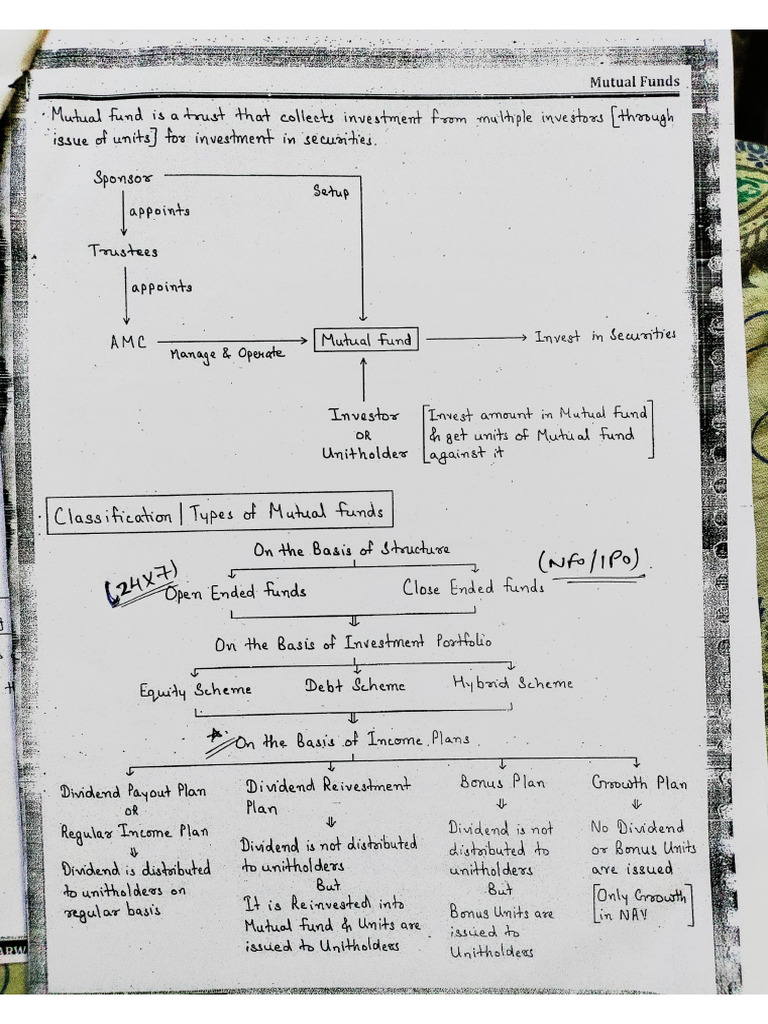 Mutual Funds
· Mutual fund is a trust that collects investment from multiple investors [through
issue of units] for investment in securities.
Sponsor
Setup
appoints
Trustees
appoints
AMC
Manage & Operate
Mutual Fund
Invest in Securities
Investor
OR
Unitholder
[Invest amount in Mutual fund
& get units of Mutual fund
against it]
· Classification | Types of Mutual funds
On the Basis of Structure
(24x7)
Open Ended funds
Close Ended funds
(NFO/IPO)
On the Basis of Investment Portfolio
Equity Scheme
Debt Scheme
Hybrid Scheme
On the Basis of Income Plans
Dividend Payout Plan
OR
Regular Income Plan
Dividend is distributed
to unitholders on
regular basis
Dividend Reivestment
Plan
Dividend is not distributed
to unitholders
But
It is Reinvested into
Mutual fund & Units are
issued to Unitholders
Bonus Plan
Dividend is not
distributed to
unitholders
But
Bonus Units are
issued to
Unitholders
Growth Plan
No Dividend
or Bonus Units
are issued
[Only Growth
in NAV]
ARW